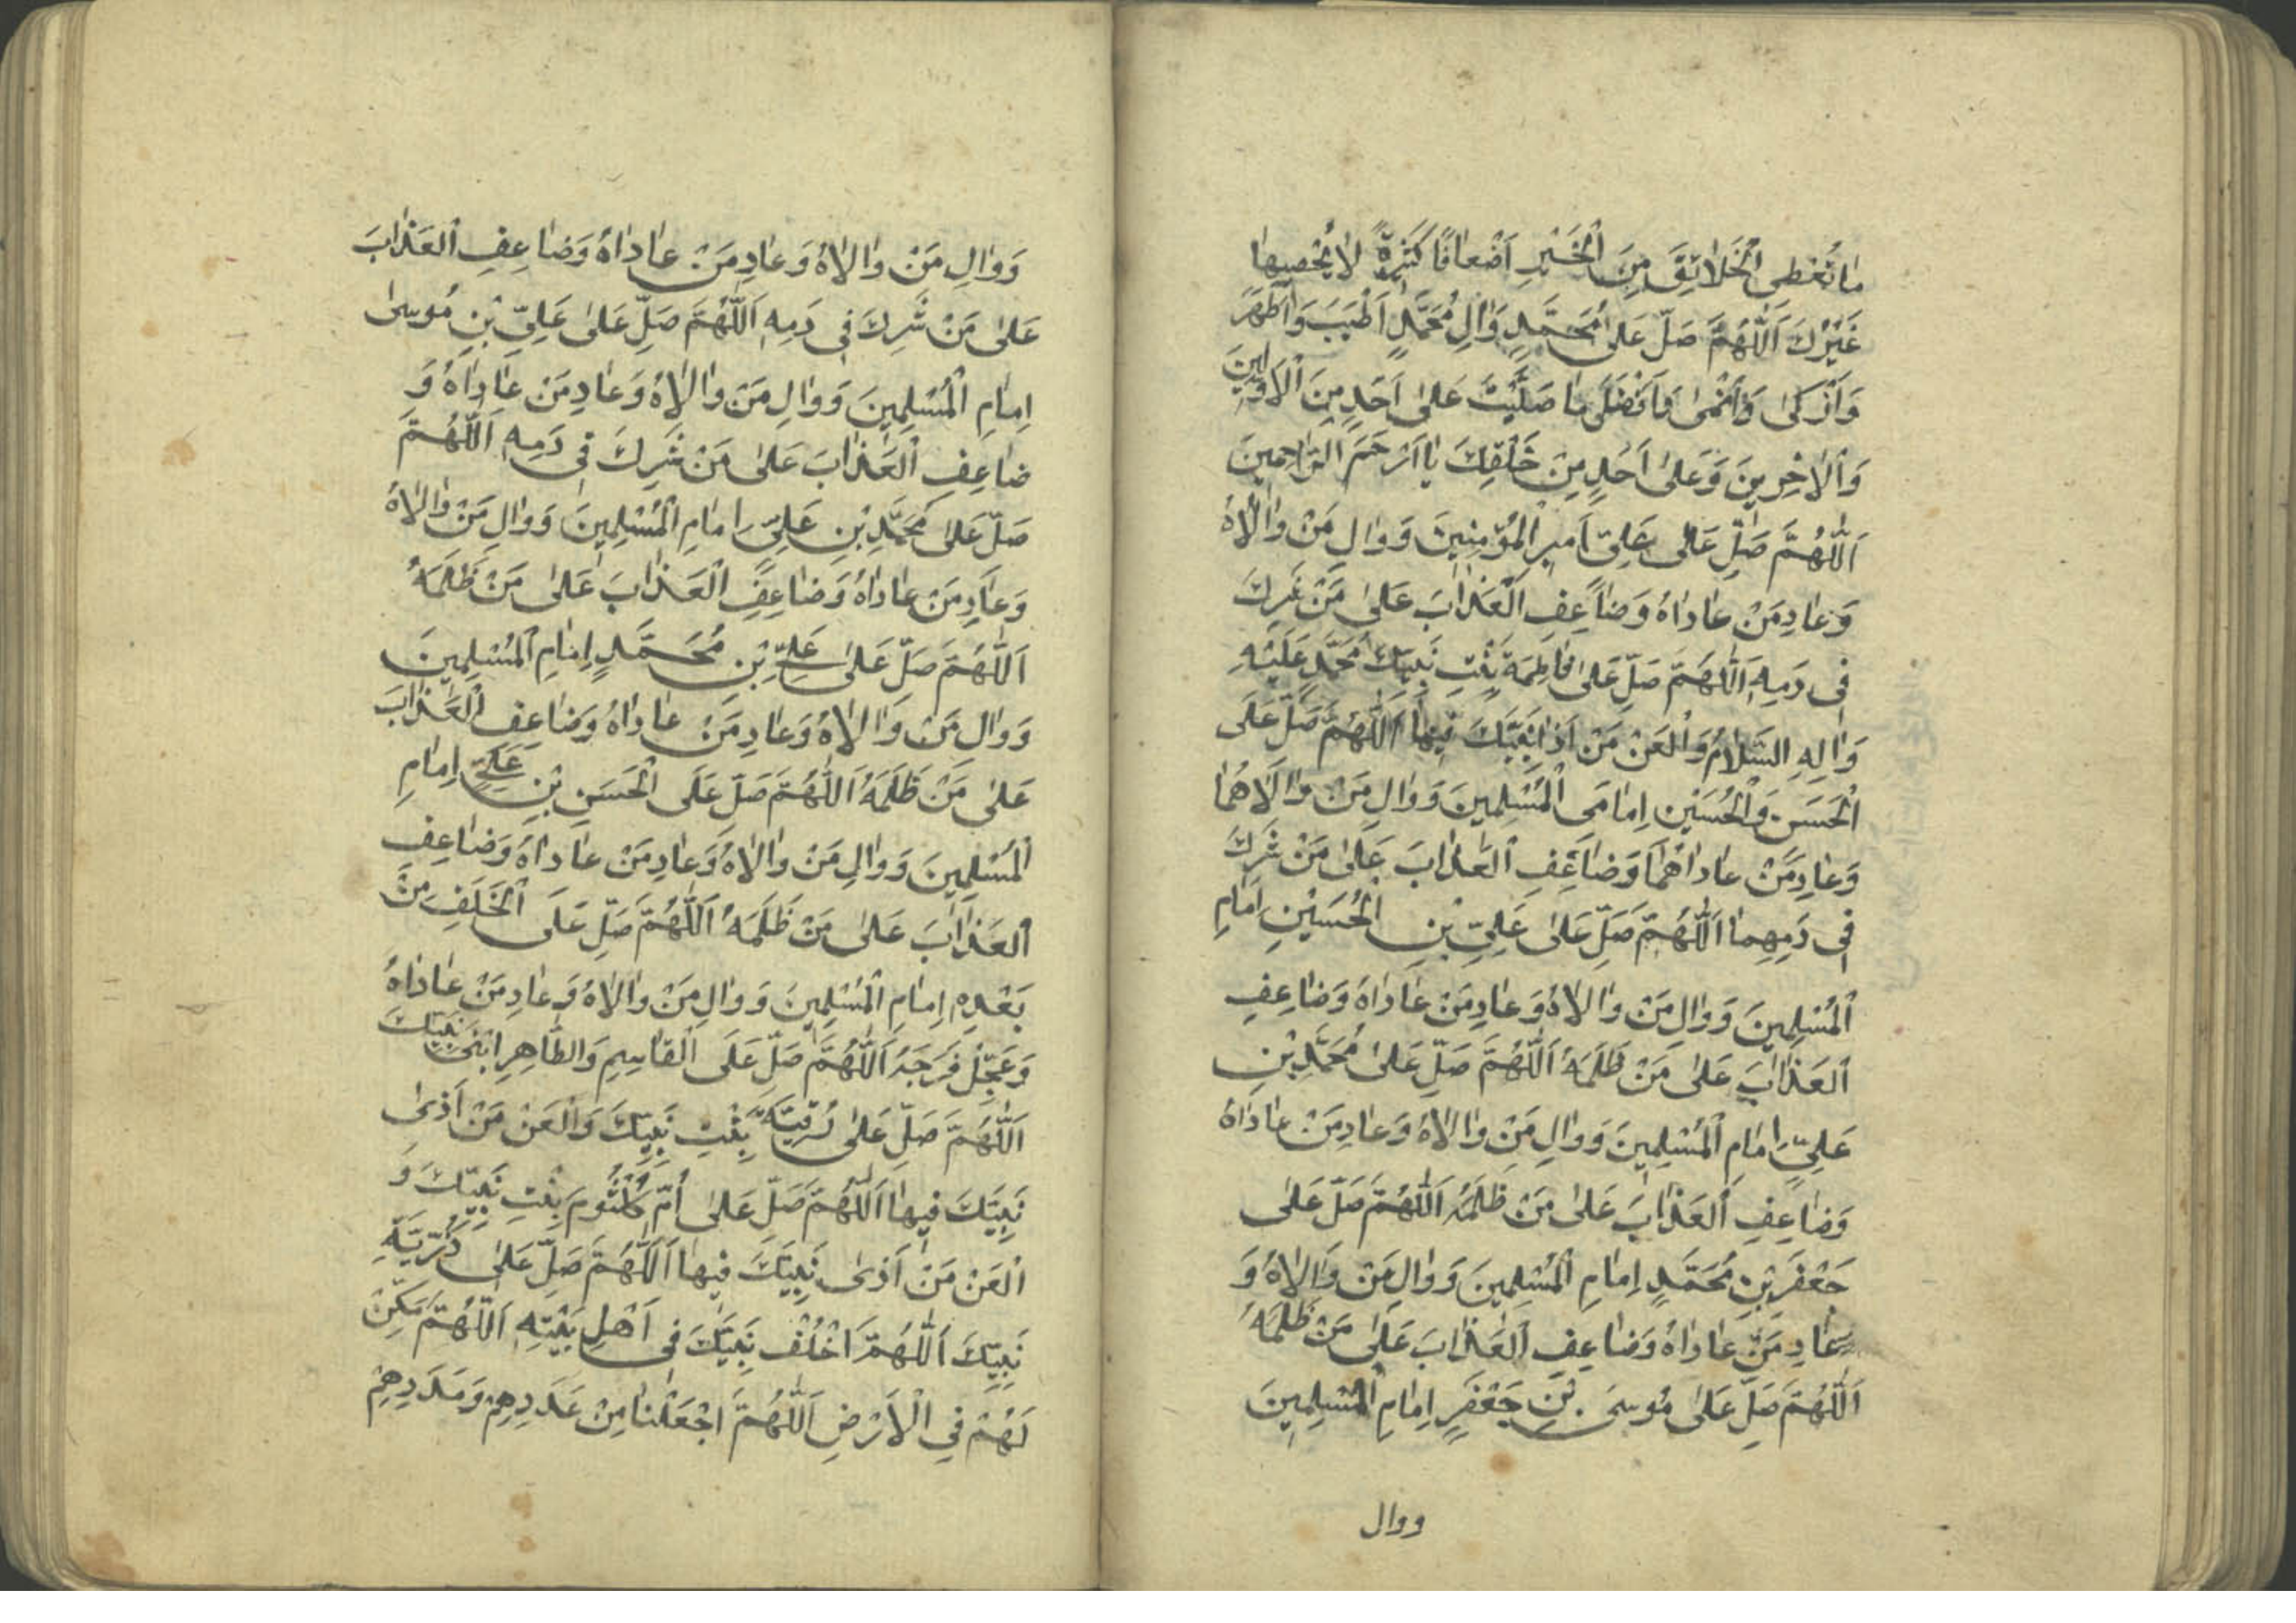 مٰا تُعْطِى الْخَلٰائِقَ مِنَ الْخَيْرِ اَضْعٰافًا كَثِيرَةً لٰا يُحْصِيهٰا
غَيْرُكَ اَللّٰهُمَّ صَلِّ عَلٰى مُحَمَّدٍ وَاٰلِ مُحَمَّدٍ اَطْيَبَ وَاَطْهَرَ
وَاَزْكىٰ وَاَنْمىٰ وَاَفْضَلَ مٰا صَلَّيْتَ عَلىٰ اَحَدٍ مِنَ الْاَوَّلِينَ
وَالْاٰخِرِينَ وَعَلىٰ اَحَدٍ مِنْ خَلْقِكَ يٰا اَرْحَمَ الرّٰاحِمِينَ
اَللّٰهُمَّ صَلِّ عَلىٰ عَلِىٍّ اَمِيرِ الْمُؤْمِنِينَ وَوٰالِ مَنْ وٰالٰاهُ
وَعٰادِ مَنْ عٰادٰاهُ وَضٰاعِفِ الْعَذٰابَ عَلىٰ مَنْ شَرِكَ
فِى دَمِهِ اَللّٰهُمَّ صَلِّ عَلىٰ فٰاطِمَةَ بِنْتِ نَبِيِّكَ مُحَمَّدٍ عَلَيْهِ
وَاٰلِهِ السَّلٰامُ وَالْعَنْ مَنْ اٰذىٰ نَبِيَّكَ فِيهٰا اَللّٰهُمَّ صَلِّ عَلَى
الْحَسَنِ وَالْحُسَيْنِ اِمٰامَىِ الْمُسْلِمِينَ وَوٰالِ مَنْ وٰالٰاهُمٰا
وَعٰادِ مَنْ عٰادٰاهُمٰا وَضٰاعِفِ الْعَذٰابَ عَلىٰ مَنْ شَرِكَ
فِى دَمِهِمٰا اَللّٰهُمَّ صَلِّ عَلىٰ عَلِىِّ بْنِ الْحُسَيْنِ اِمٰامِ
الْمُسْلِمِينَ وَوٰالِ مَنْ وٰالٰاهُ وَعٰادِ مَنْ عٰادٰاهُ وَضٰاعِفِ
الْعَذٰابَ عَلىٰ مَنْ ظَلَمَهُ اَللّٰهُمَّ صَلِّ عَلىٰ مُحَمَّدِ بْنِ
عَلِىٍّ اِمٰامِ الْمُسْلِمِينَ وَوٰالِ مَنْ وٰالٰاهُ وَعٰادِ مَنْ عٰادٰاهُ
وَضٰاعِفِ الْعَذٰابَ عَلىٰ مَنْ ظَلَمَهُ اَللّٰهُمَّ صَلِّ عَلىٰ
جَعْفَرِ بْنِ مُحَمَّدٍ اِمٰامِ الْمُسْلِمِينَ وَوٰالِ مَنْ وٰالٰاهُ وَ
عٰادِ مَنْ عٰادٰاهُ وَضٰاعِفِ الْعَذٰابَ عَلىٰ مَنْ ظَلَمَهُ
اَللّٰهُمَّ صَلِّ عَلىٰ مُوسَى بْنِ جَعْفَرٍ اِمٰامِ الْمُسْلِمِينَ
ووال
وَوٰالِ مَنْ وٰالٰاهُ وَعٰادِ مَنْ عٰادٰاهُ وَضٰاعِفِ الْعَذٰابَ
عَلىٰ مَنْ شَرِكَ فِى دَمِهِ اَللّٰهُمَّ صَلِّ عَلىٰ عَلِىِّ بْنِ مُوسىٰ
اِمٰامِ الْمُسْلِمِينَ وَوٰالِ مَنْ وٰالٰاهُ وَعٰادِ مَنْ عٰادٰاهُ وَ
ضٰاعِفِ الْعَذٰابَ عَلىٰ مَنْ شَرِكَ فِى دَمِهِ اَللّٰهُمَّ
صَلِّ عَلىٰ مُحَمَّدِ بْنِ عَلِىٍّ اِمٰامِ الْمُسْلِمِينَ وَوٰالِ مَنْ وٰالٰاهُ
وَعٰادِ مَنْ عٰادٰاهُ وَضٰاعِفِ الْعَذٰابَ عَلىٰ مَنْ ظَلَمَهُ
اَللّٰهُمَّ صَلِّ عَلىٰ عَلِىِّ بْنِ مُحَمَّدٍ اِمٰامِ الْمُسْلِمِينَ
وَوٰالِ مَنْ وٰالٰاهُ وَعٰادِ مَنْ عٰادٰاهُ وَضٰاعِفِ الْعَذٰابَ
عَلىٰ مَنْ ظَلَمَهُ اَللّٰهُمَّ صَلِّ عَلَى الْحَسَنِ بْنِ عَلِىٍّ اِمٰامِ
الْمُسْلِمِينَ وَوٰالِ مَنْ وٰالٰاهُ وَعٰادِ مَنْ عٰادٰاهُ وَضٰاعِفِ
الْعَذٰابَ عَلىٰ مَنْ ظَلَمَهُ اَللّٰهُمَّ صَلِّ عَلَى الْخَلَفِ مِنْ
بَعْدِهِ اِمٰامِ الْمُسْلِمِينَ وَوٰالِ مَنْ وٰالٰاهُ وَعٰادِ مَنْ عٰادٰاهُ
وَعَجِّلْ فَرَجَهُ اَللّٰهُمَّ صَلِّ عَلَى الْقٰاسِمِ وَالطّٰاهِرِ ابْنَىْ نَبِيِّكَ
اَللّٰهُمَّ صَلِّ عَلىٰ رُقَيَّةَ بِنْتِ نَبِيِّكَ وَالْعَنْ مَنْ اٰذىٰ
نَبِيَّكَ فِيهٰا اَللّٰهُمَّ صَلِّ عَلىٰ اُمِّ كُلْثُومَ بِنْتِ نَبِيِّكَ وَ
الْعَنْ مَنْ اٰذىٰ نَبِيَّكَ فِيهٰا اَللّٰهُمَّ صَلِّ عَلىٰ ذُرِّيَّةِ
نَبِيِّكَ اَللّٰهُمَّ اخْلُفْ نَبِيَّكَ فِى اَهْلِ بَيْتِهِ اَللّٰهُمَّ مَكِّنْ
لَهُمْ فِى الْاَرْضِ اَللّٰهُمَّ اجْعَلْنٰا مِنْ عَدَدِهِمْ وَمَدَدِهِمْ